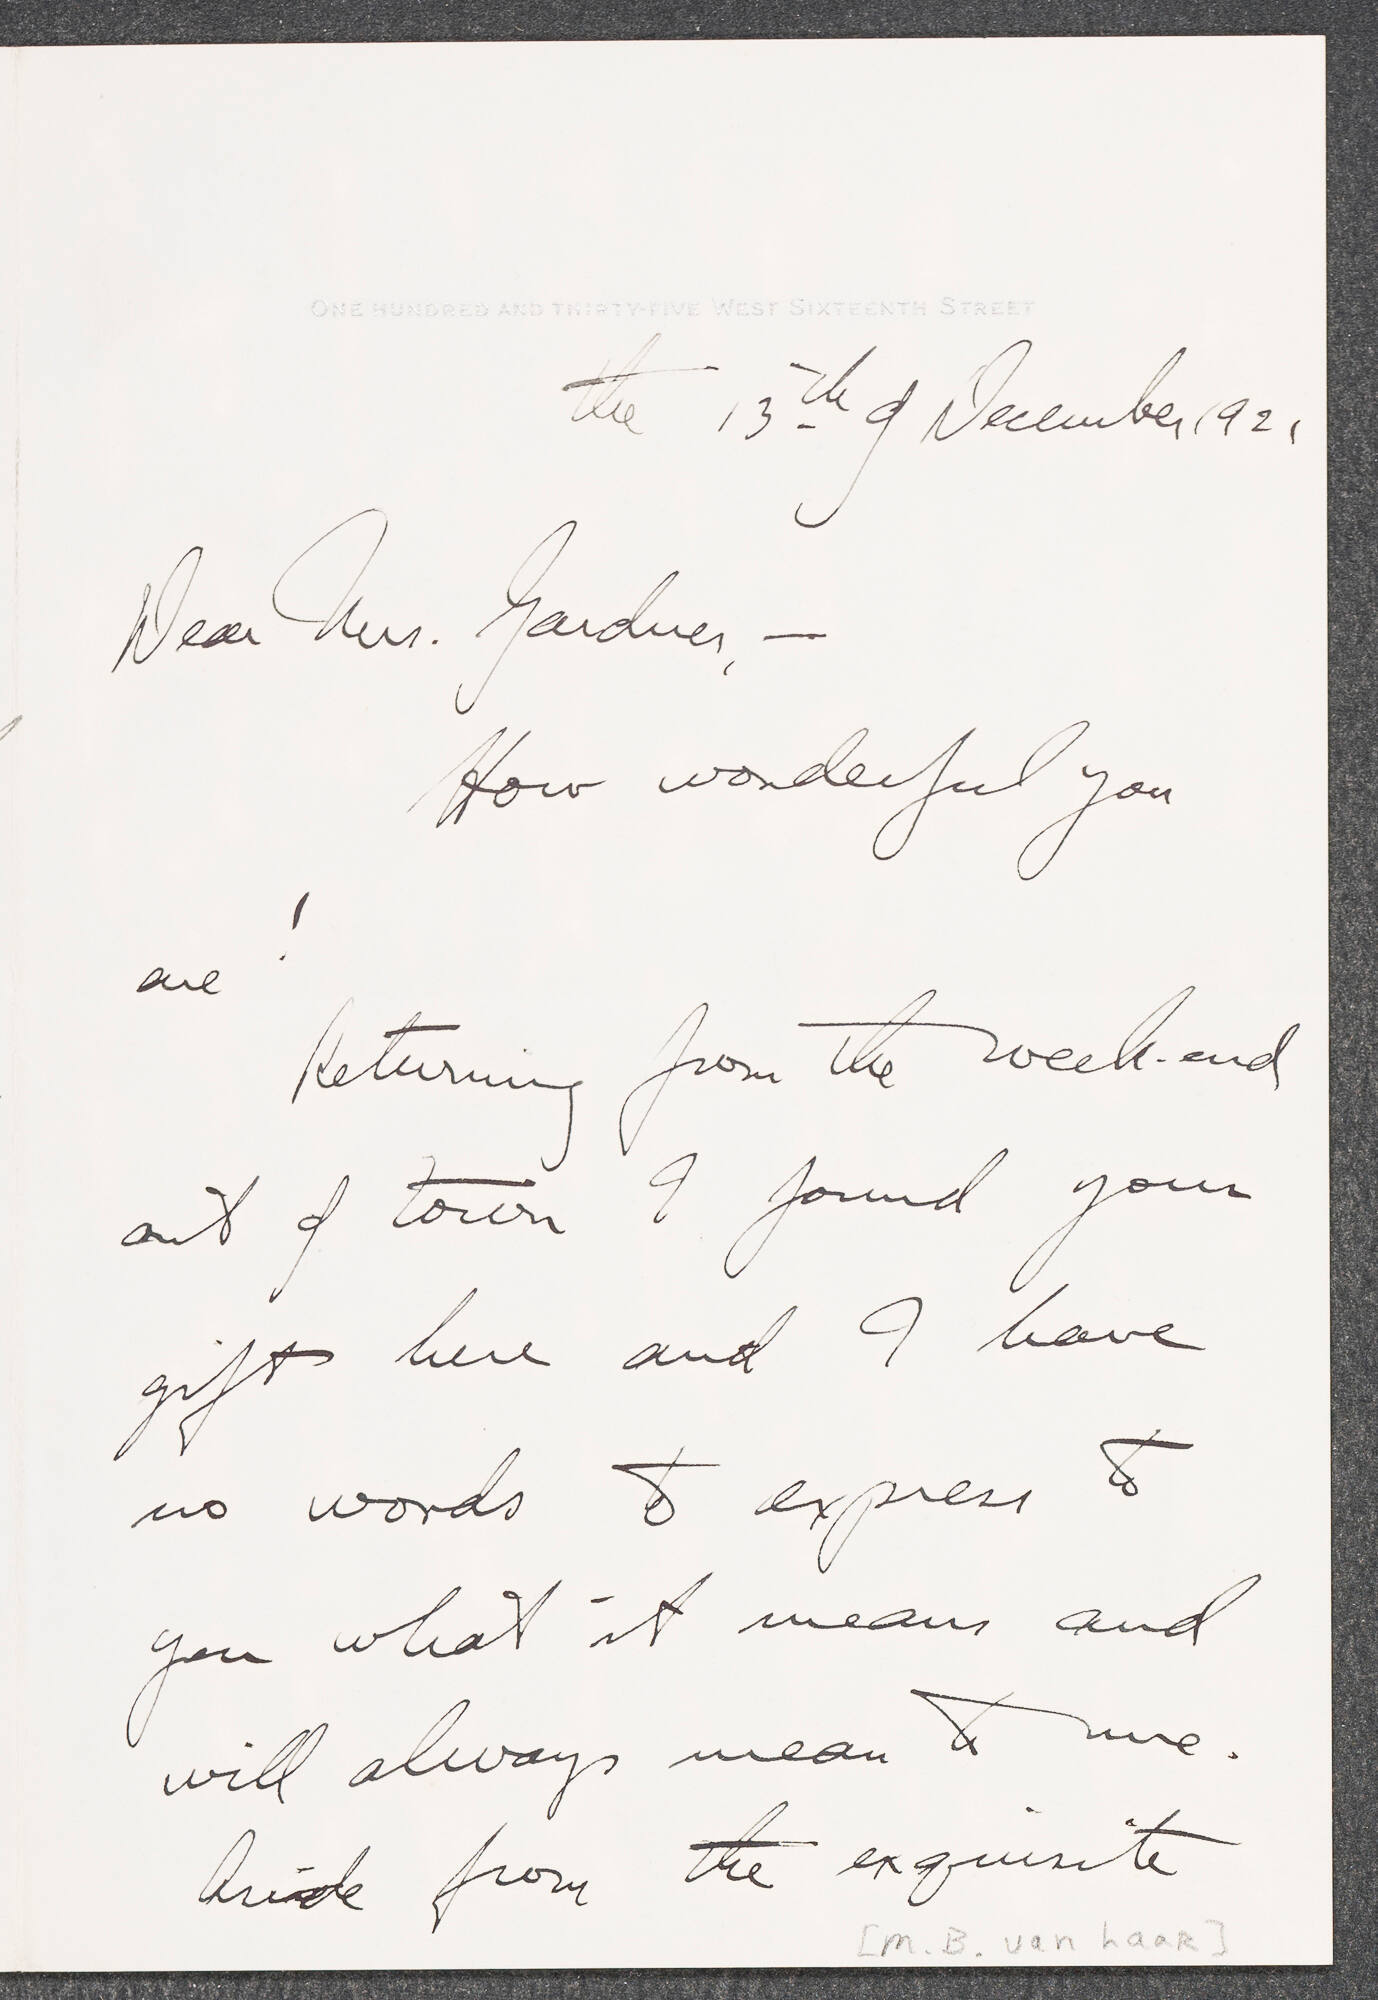 ONE HUNDRED AND THIRTY-FIVE WEST SIXTEENTH STREET
the 13th of December, 1921
Dear Mrs. Gardner, —
How wonderful you
are!
Returning from the week-end
out of town I found your
gift here and I have
no words to express to
you what it means and
will always mean to me.
Aside from the exquisite
[M. B. van haar]